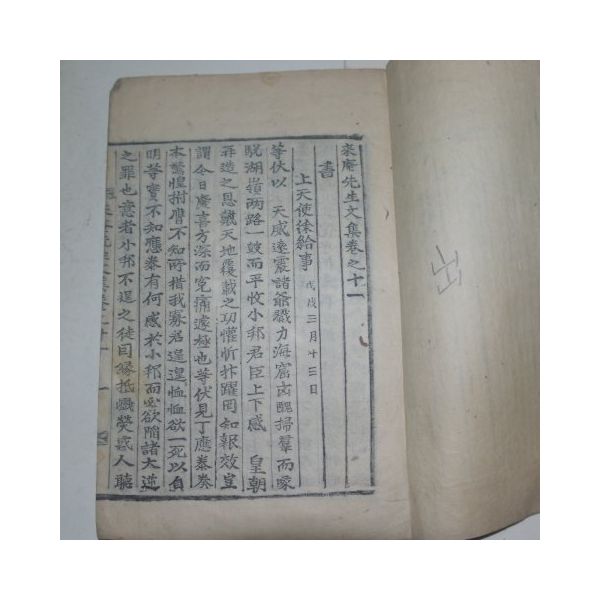 來庵先生文集卷之十一
書
上天使徐給事 戊戌三月十三日
等伏以 天威遠震諸爺戮力海窟凶醜掃羣而喙
駾湖嶺兩路一鼓而平收小邦君臣上下感 皇朝
再造之恩戴天地覆載之功懽忻抃躍罔知報效豈
謂今日慶喜方深而寃痛遽極也等伏見丁應泰奏
本驚惶拊膺不知所措我寡君遑遑恤恤欲一死以自
明等實不知應泰有何感於小邦而必欲陷諸大逆
之罪也意者小邦不逞之徒因緣抵巇熒惑人聽
出